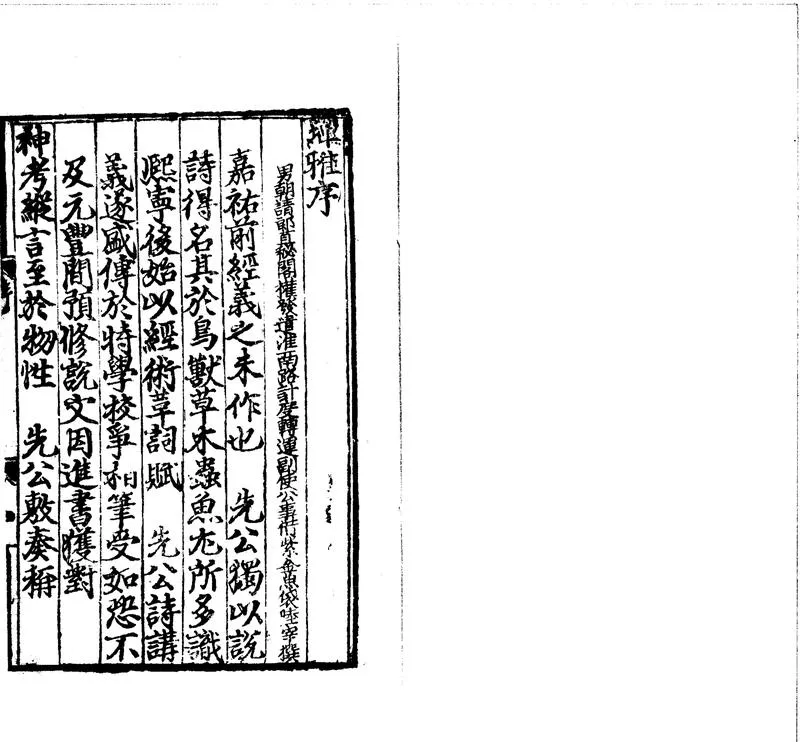 埤雅序
男朝請郎直秘閣權發遣淮南路計度轉運副使公事借紫金魚袋陸宰撰
嘉祐前經義之未作也 先公獨以說
詩得名其於鳥獸草木蟲魚尤所多識
熈寧後始以經術革詞賦 先公詩講
義遂盛傳於時學校爭相筆受如恐不
及元豐間預修說文因進書獲對
神考縱言至於物性 先公敷奏稱